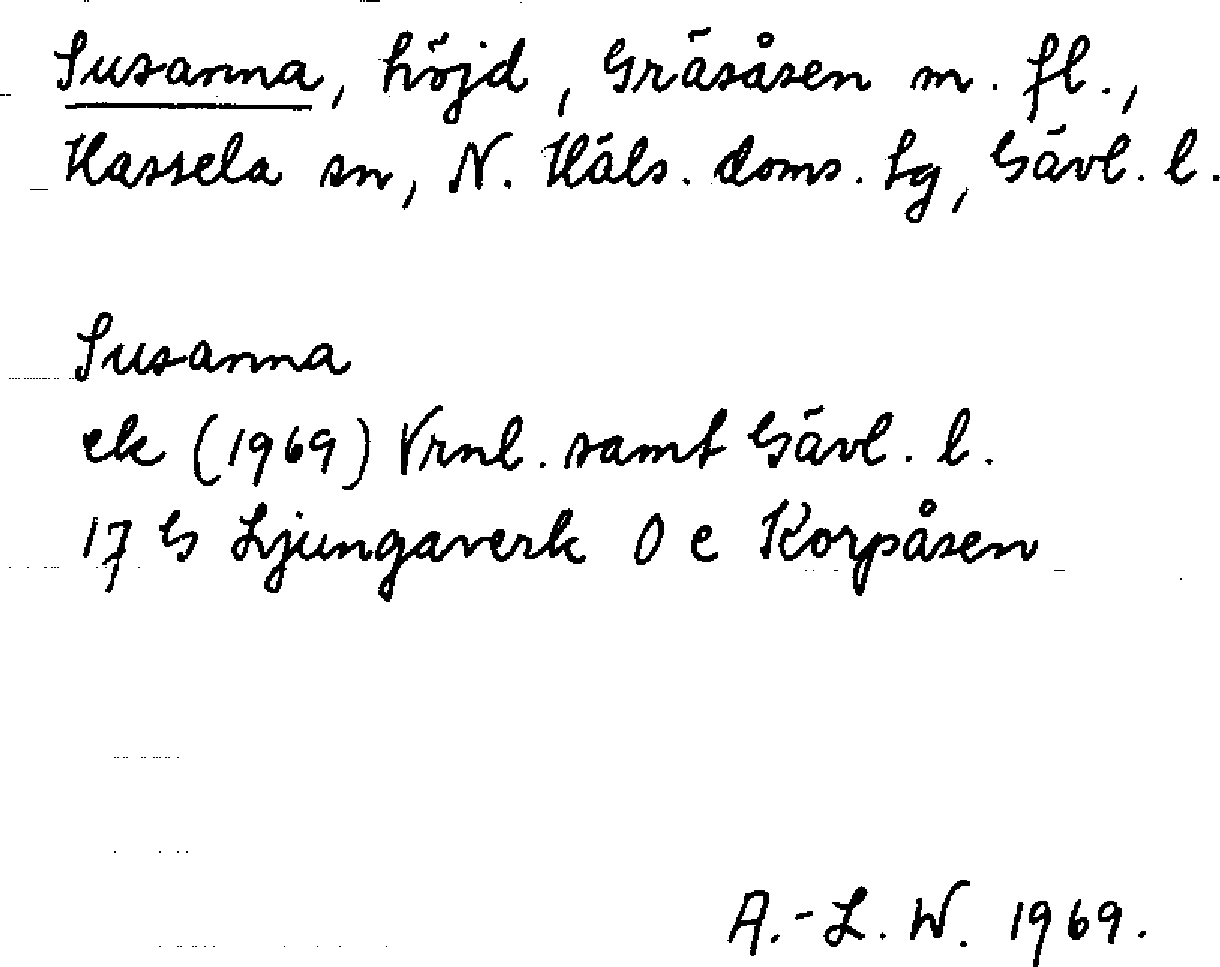 Susanna, höjd, Gräsåsen m. fl.,
Hassela sn, N. Häls. doms. tg, Gävl. l.
Susanna
ek (1969) Vrnl. samt Gävl. l.
17 G Ljungaverk O e Korpåsen
A.-L. W. 1969.